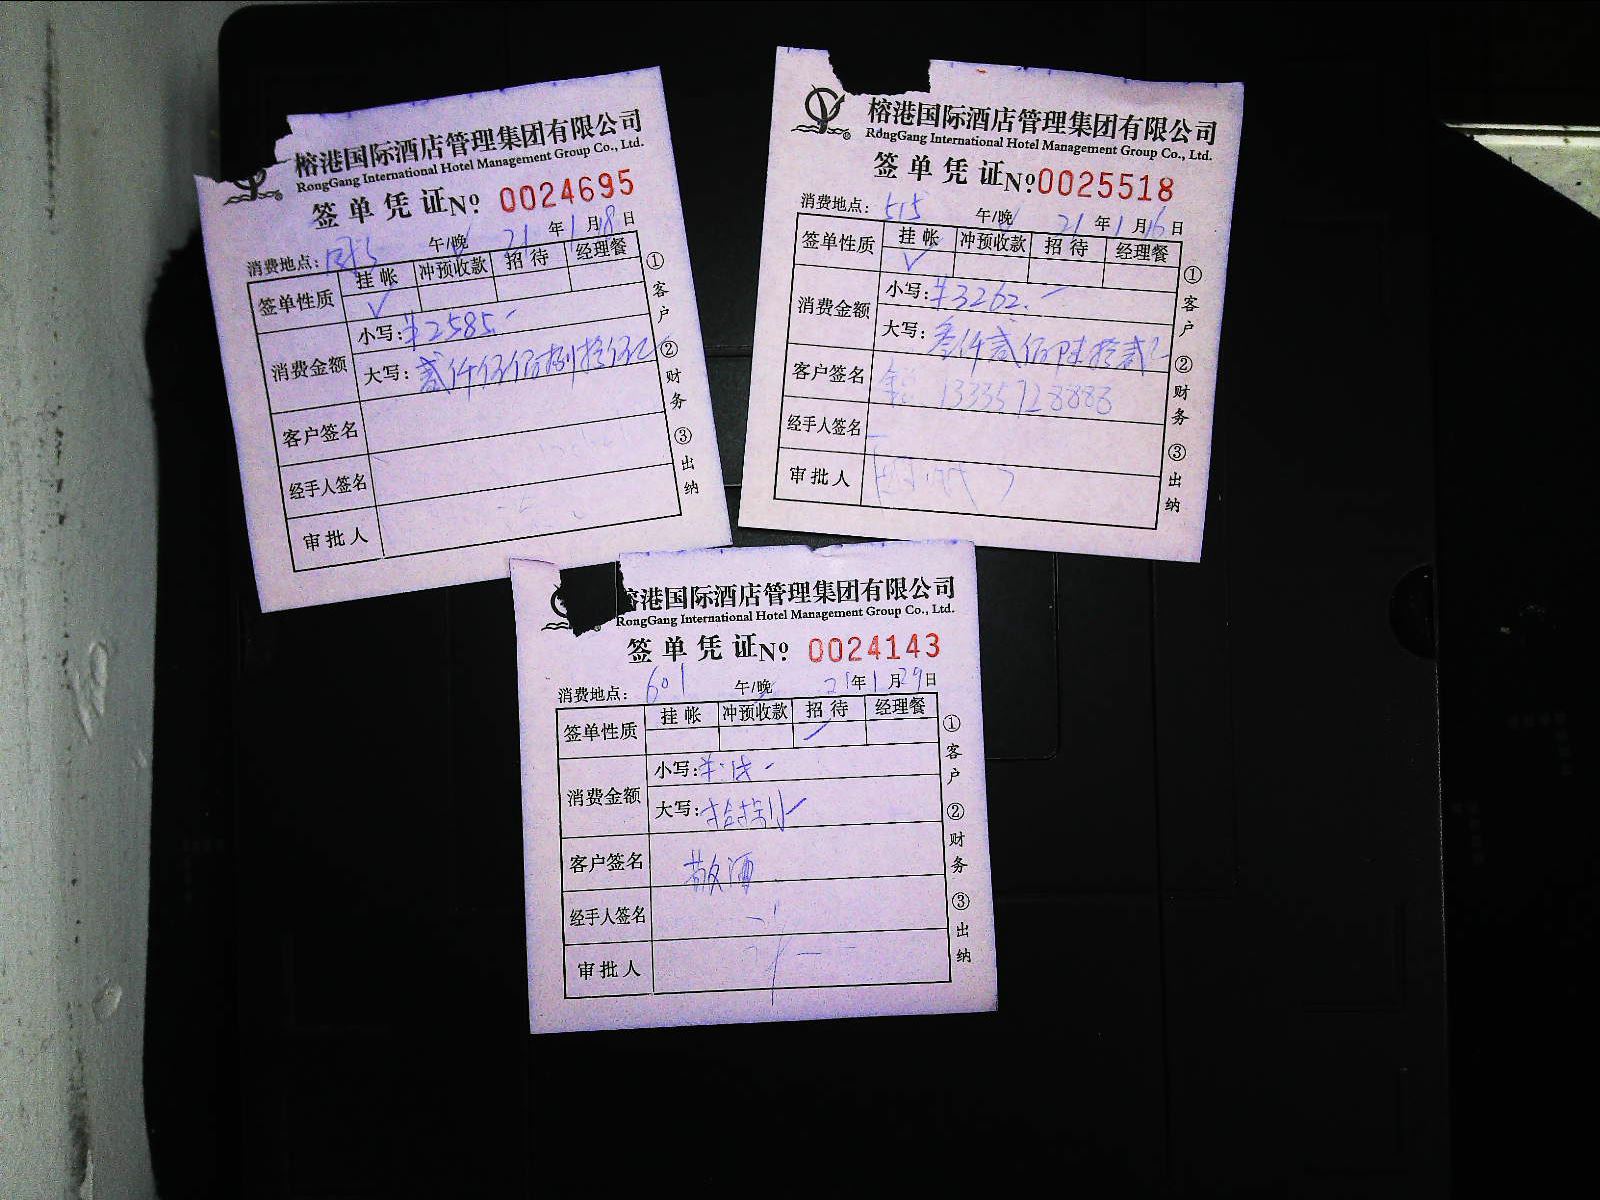 榕港国际酒店管理集团有限公司
RongGang International Hotel Management Group Co., Ltd.
签单凭证 Nº 0024695
消费地点： 午/晚 21年1月18日
签单性质 挂帐 冲预收款 招待 经理餐
✓
消费金额 小写：¥2585.-
大写：贰仟伍佰捌拾伍元
客户签名
经手人签名
审批人
①客户 ②财务 ③出纳
榕港国际酒店管理集团有限公司
RongGang International Hotel Management Group Co., Ltd.
签单凭证 Nº 0025518
消费地点：515 午/晚 21年1月16日
签单性质 挂帐 冲预收款 招待 经理餐
✓
消费金额 小写：¥3262.-
大写：叁仟贰佰陆拾贰元
客户签名 13335728888
经手人签名
审批人
①客户 ②财务 ③出纳
榕港国际酒店管理集团有限公司
RongGang International Hotel Management Group Co., Ltd.
签单凭证 Nº 0024143
消费地点：601 午/晚 21年1月29日
签单性质 挂帐 冲预收款 招待 经理餐
✓
消费金额 小写：
大写：
客户签名 敬酒
经手人签名
审批人
①客户 ②财务 ③出纳